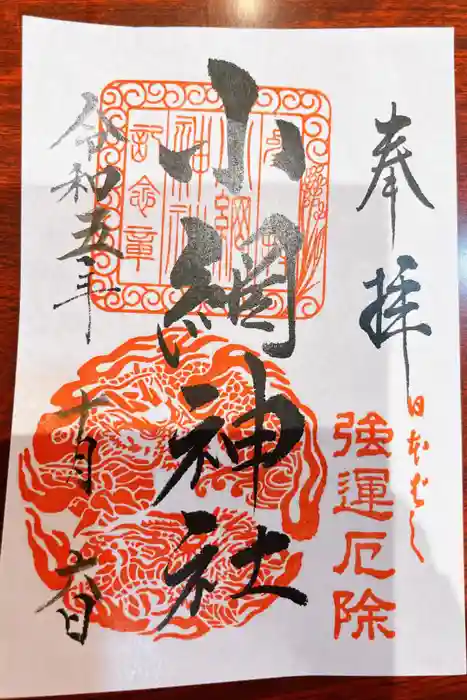 奉拝
日本ばし
強運厄除
小網神社
小網神社
記念章
令和五年
十月
六日